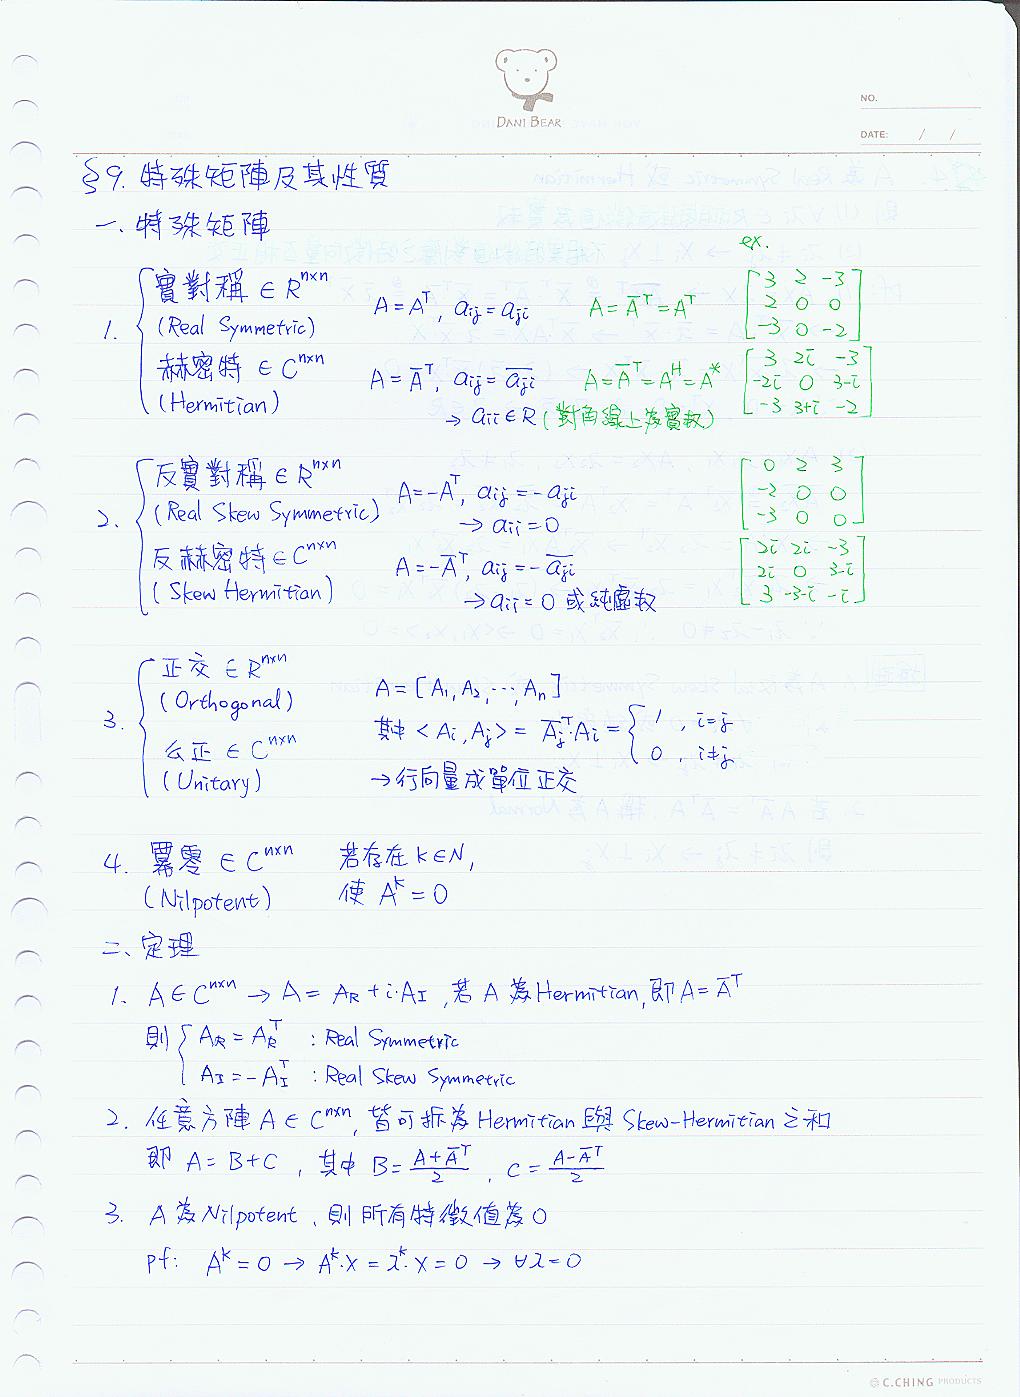 DANI BEAR
NO.
DATE: / /
§9. 特殊矩陣及其性質
一、特殊矩陣
ex.
1. 實對稱 ∈ R^{n×n} (Real Symmetric) A = A^T, a_{ij} = a_{ji} A = \overline{A}^T = A^T [3 2 -3; 2 0 0; -3 0 -2]
赫密特 ∈ C^{n×n} (Hermitian) A = \overline{A}^T, a_{ij} = \overline{a_{ji}} A = \overline{A}^T = A^H = A^* [3 2i -3; -2i 0 3-i; -3 3+i -2]
→ a_{ii} ∈ R (對角線上為實數)
2. 反實對稱 ∈ R^{n×n} (Real Skew Symmetric) A = -A^T, a_{ij} = -a_{ji} [0 2 3; -2 0 0; -3 0 0]
→ a_{ii} = 0
反赫密特 ∈ C^{n×n} (Skew Hermitian) A = -\overline{A}^T, a_{ij} = -\overline{a_{ji}} [2i 2i -3; 2i 0 3-i; 3 -3-i -i]
→ a_{ii} = 0 或純虛數
3. 正交 ∈ R^{n×n}
(Orthogonal) A = [A_1, A_2, ..., A_n]
么正 ∈ C^{n×n} 其中 <A_i, A_j> = \overline{A_j}^T·A_i = { 1 , i=j
0 , i≠j
(Unitary) → 行向量成單位正交
4. 冪零 ∈ C^{n×n} 若存在 k∈N,
(Nilpotent) 使 A^k = 0
二、定理
1. A ∈ C^{n×n} → A = A_R + i·A_I, 若 A 為 Hermitian, 即 A = \overline{A}^T
則 { A_R = A_R^T : Real Symmetric
A_I = -A_I^T : Real Skew Symmetric
2. 任意方陣 A ∈ C^{n×n}, 皆可拆為 Hermitian 與 Skew-Hermitian 之和
即 A = B+C, 其中 B = \frac{A+\overline{A}^T}{2}, C = \frac{A-\overline{A}^T}{2}
3. A 為 Nilpotent, 則所有特徵值為 0
pf: A^k = 0 → A^k·X = λ^k·X = 0 → ∀λ = 0
C.CHING PRODUCTS